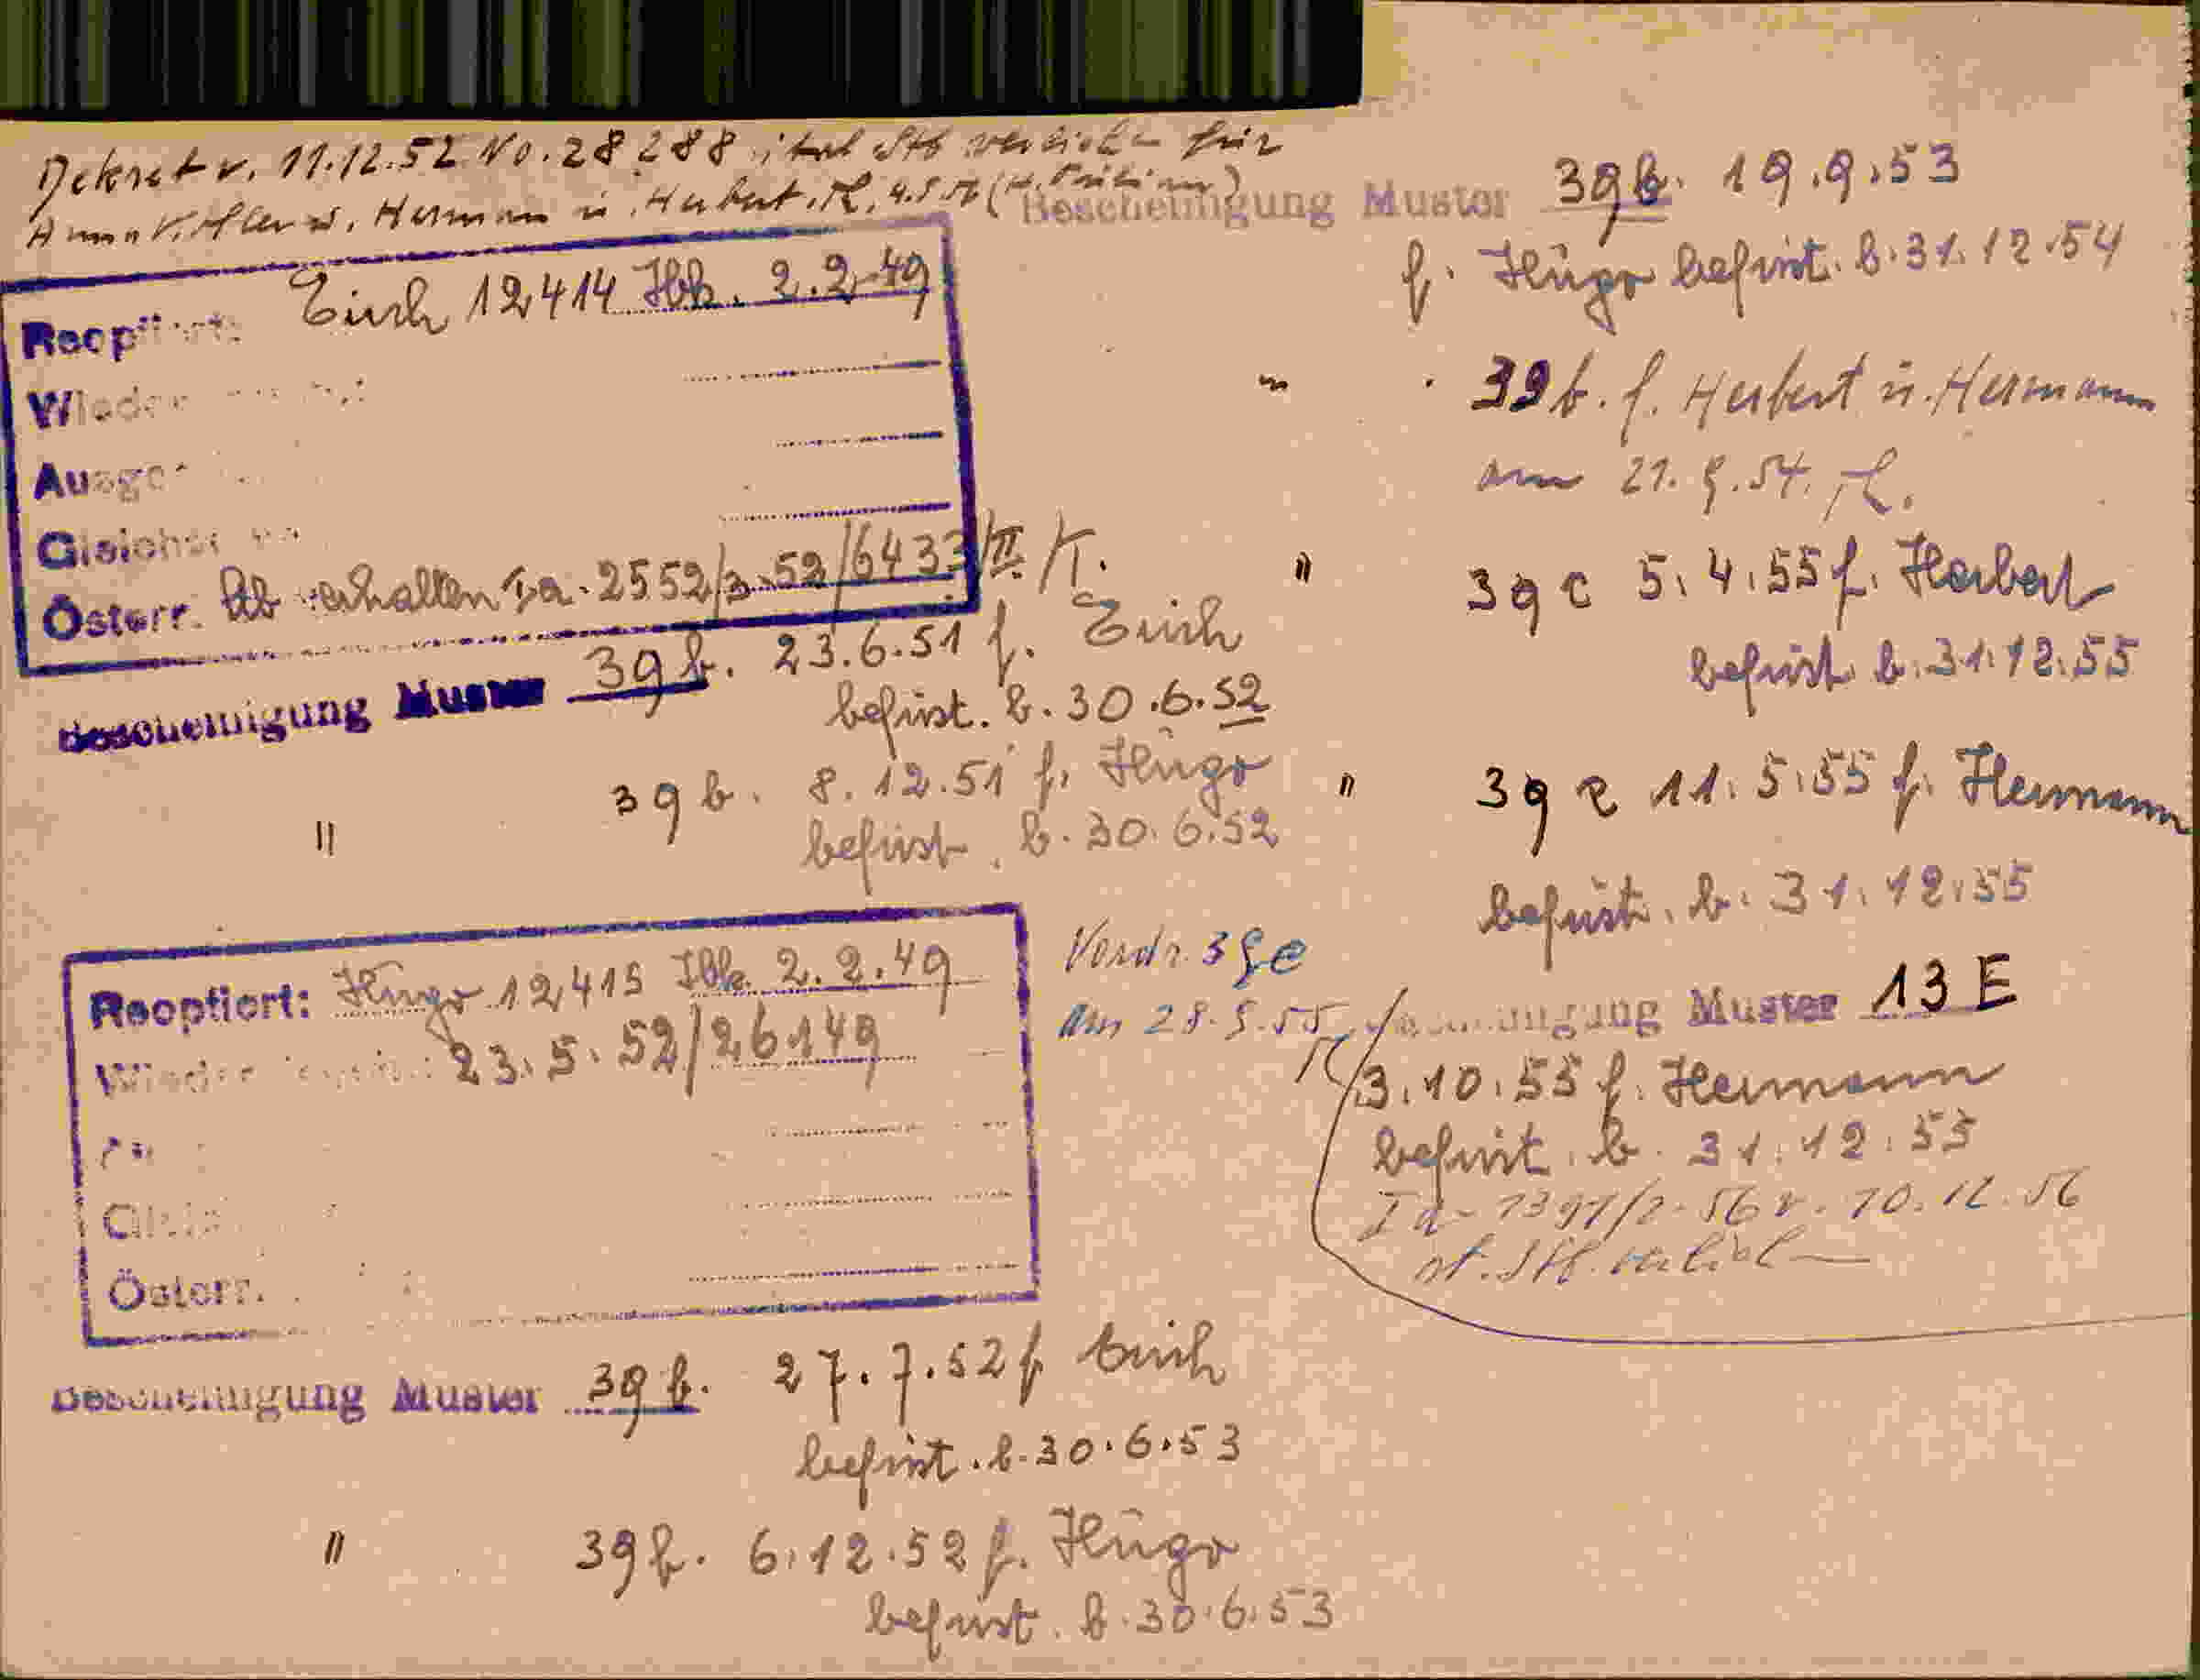 Dekret v. 11.12.52 No. 28288 ital Stb verliehen für
Anna V. Hermann u. Herbert. 4.5.56
Reoptiert: Erich 12414 Ibk. 2.2.49
Österr. Stb erhalten Ia-2552/2-52/6433/II/K.
Bescheinigung Muster 39 b. 23.6.51 f. Erich
befrist. b. 30.6.52
" 39 b. 8.12.51 f. Hugo
befrist. b. 30.6.52
Reoptiert: Hugo 12415 Ibk. 2.2.49
23.5.52/26149
Österr.
Bescheinigung Muster 39 b. 27.7.52 f. Erich
befrist. b. 30.6.53
" 39 b. 6.12.52 f. Hugo
befrist. b. 30.6.53
Bescheinigung Muster 39 b. 19.9.53
f. Hugo befrist. b. 31.12.54
" 39 b. f. Herbert u. Hermann
am 21.9.54.
" 39 c 5.4.55 f. Herbert
befrist. b. 31.12.55
" 39 e 11.5.55 f. Hermann
befrist. b. 31.12.55
Vordr. 39e
am 28.9.55
Bescheinigung Muster 13 E
3.10.55 f. Hermann
befrist. b. 31.12.55
Ia-1391/2-56 v. 10.12.56